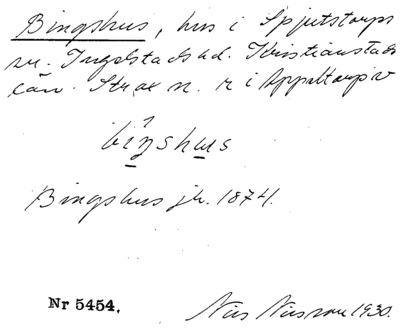 Bingshus, hus i Spjutstorps
sn. Ingelstads hd. Kristianstads
län. Strax n. v i Appeltorp v
bíŋshus
Bingshus jb. 1874.
Nr 5454. Nils Nilsson 1930.